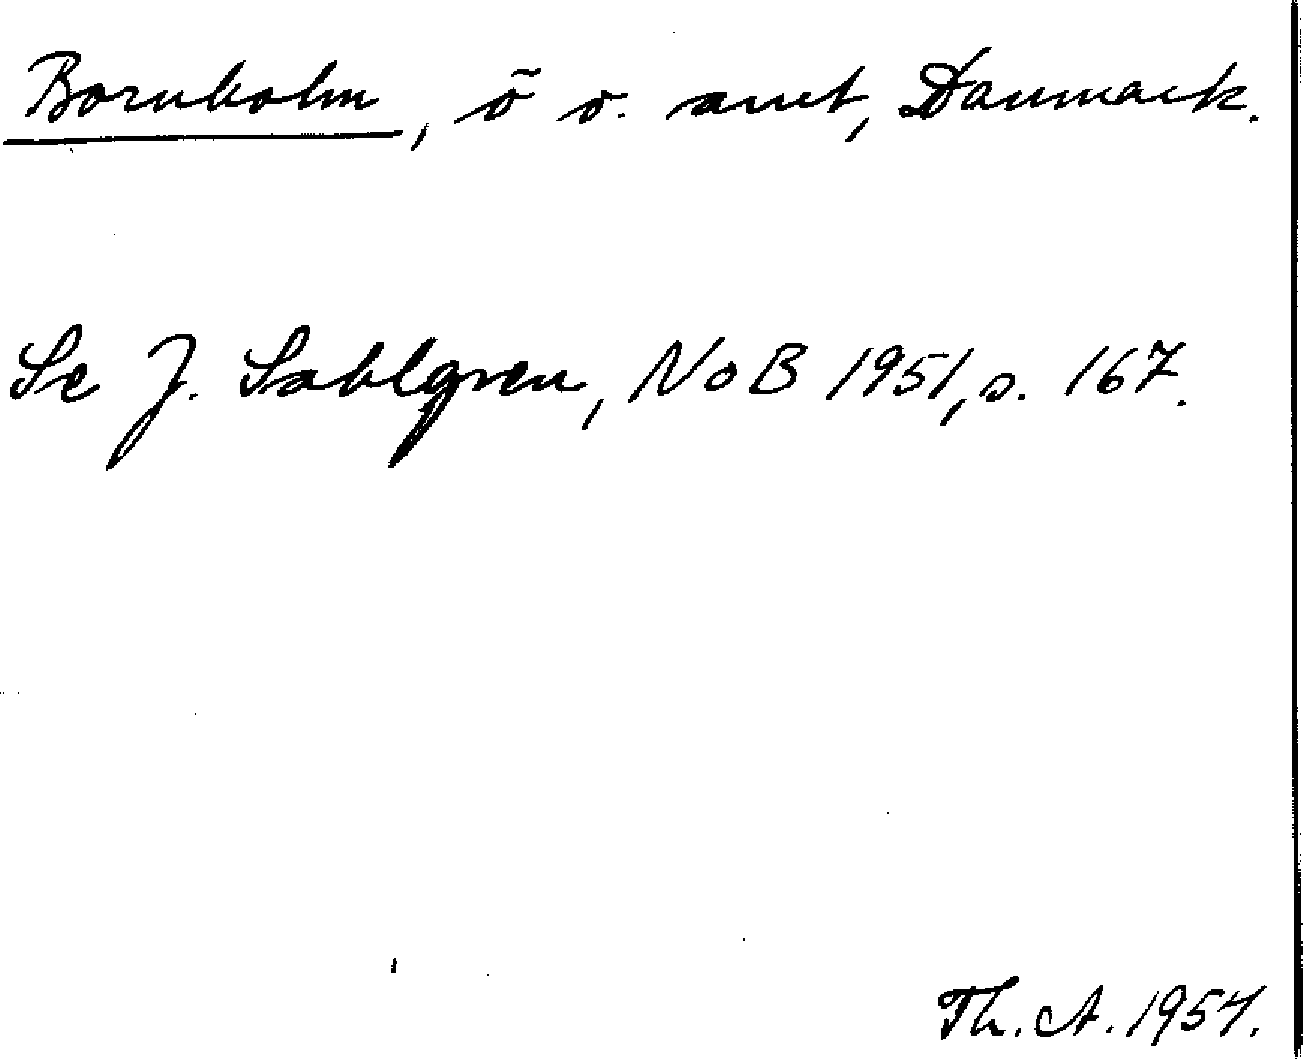 Bornholm, ö o. amt, Danmark.
Se J. Sahlgren, NoB 1951, s. 167.
Th. A. 1954.